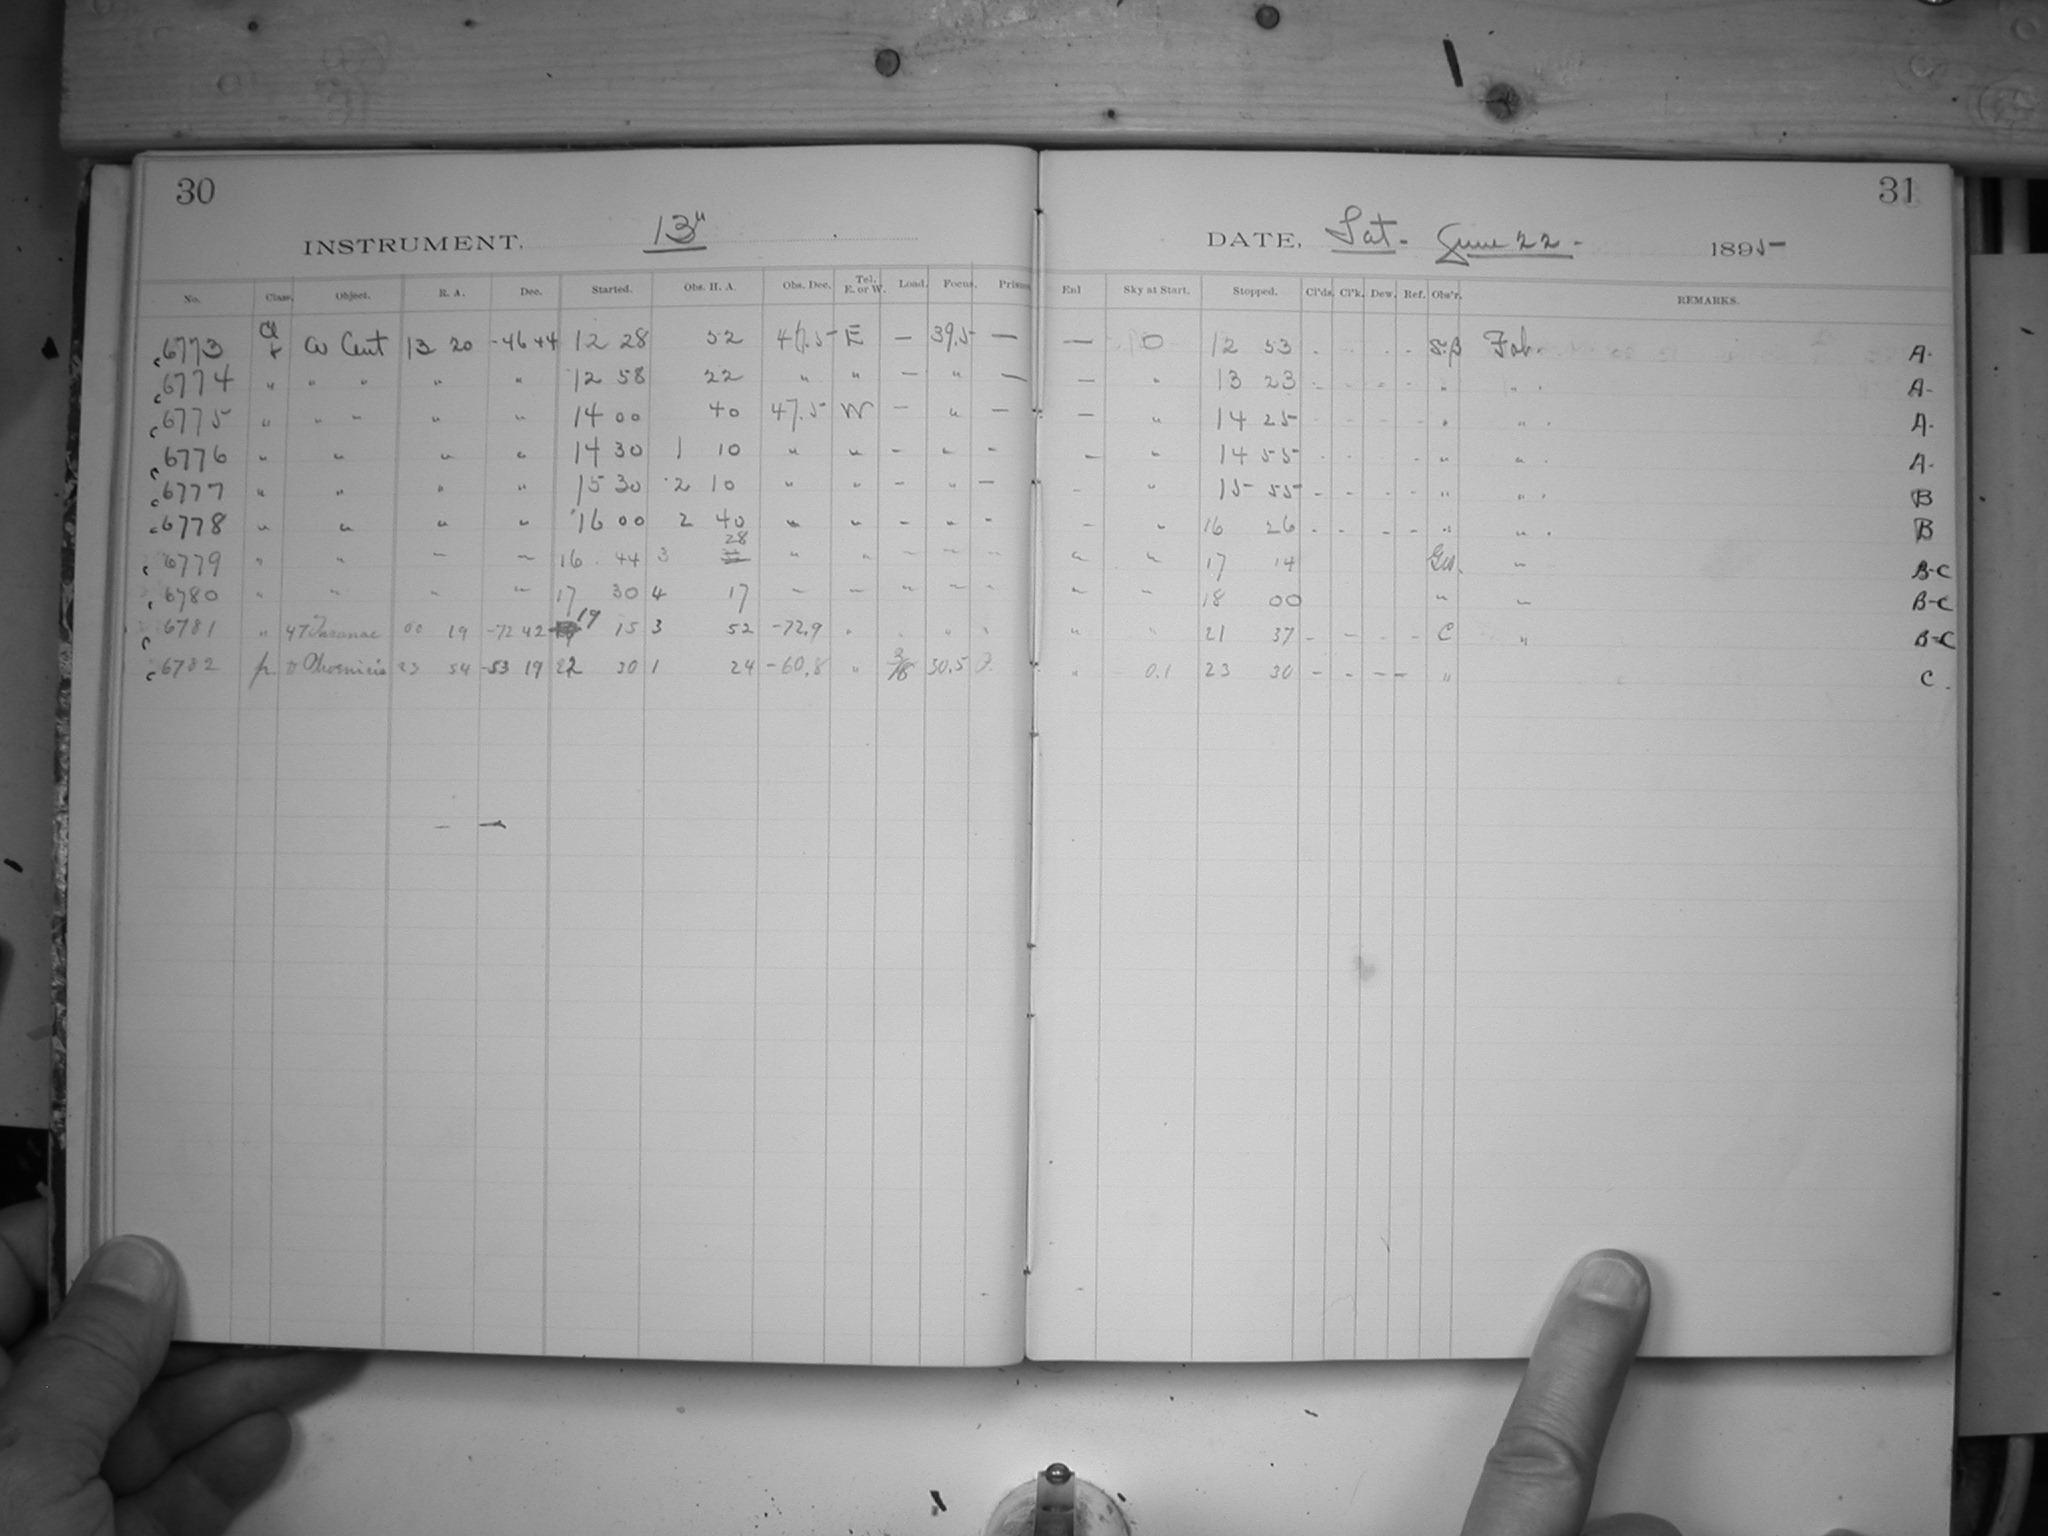 30
31
INSTRUMENT. 13"
DATE, Sat. June 22 - 1895
No. Class. Object. R. A. Dec. Started. Obs. H. A. Obs. Dec. Tel. E. or W. Load. Focus. Prism Enl Sky at Start. Stopped. Cl'ds. Cl'k. Dew. Ref. Obs'r. REMARKS.
c 6773 Cl + ω Cent 13 20 -46 44 12 28 52 E — 39.5 — — 0 12 53 . . . . A.
c 6774 " " " " " 12 58 22 " " — " — — " 13 23 - - - - " " . A.
c 6775 " " " " " 14 00 40 47.5 W — " — — " 14 25 - - - - " " . A.
c 6776 " " " " 14 30 1 10 " " - - - — " 14 55 . . . . " " . A.
c 6777 " " " " 15 30 2 10 " " - " — - " 15 55 - - - - " " . B
c 6778 " " " " 16 00 2 40 " " - - - - " 16 26 - - - - " " . B
c 6779 " " " " 16 44 3 28 " " " " " " " 17 14 " B-C
c 6780 " " " " 17 30 4 17 " " " " " " " 18 00 " " B-C
c 6781 " 47 00 19 -72 42 19 15 3 52 -72.9 " " " " " " 21 37 - - - - C " B-C
c 6782 p. Phoenicis 23 54 -53 19 22 30 1 24 -60.8 " 30.5 " 0.1 23 30 - - - - " C.